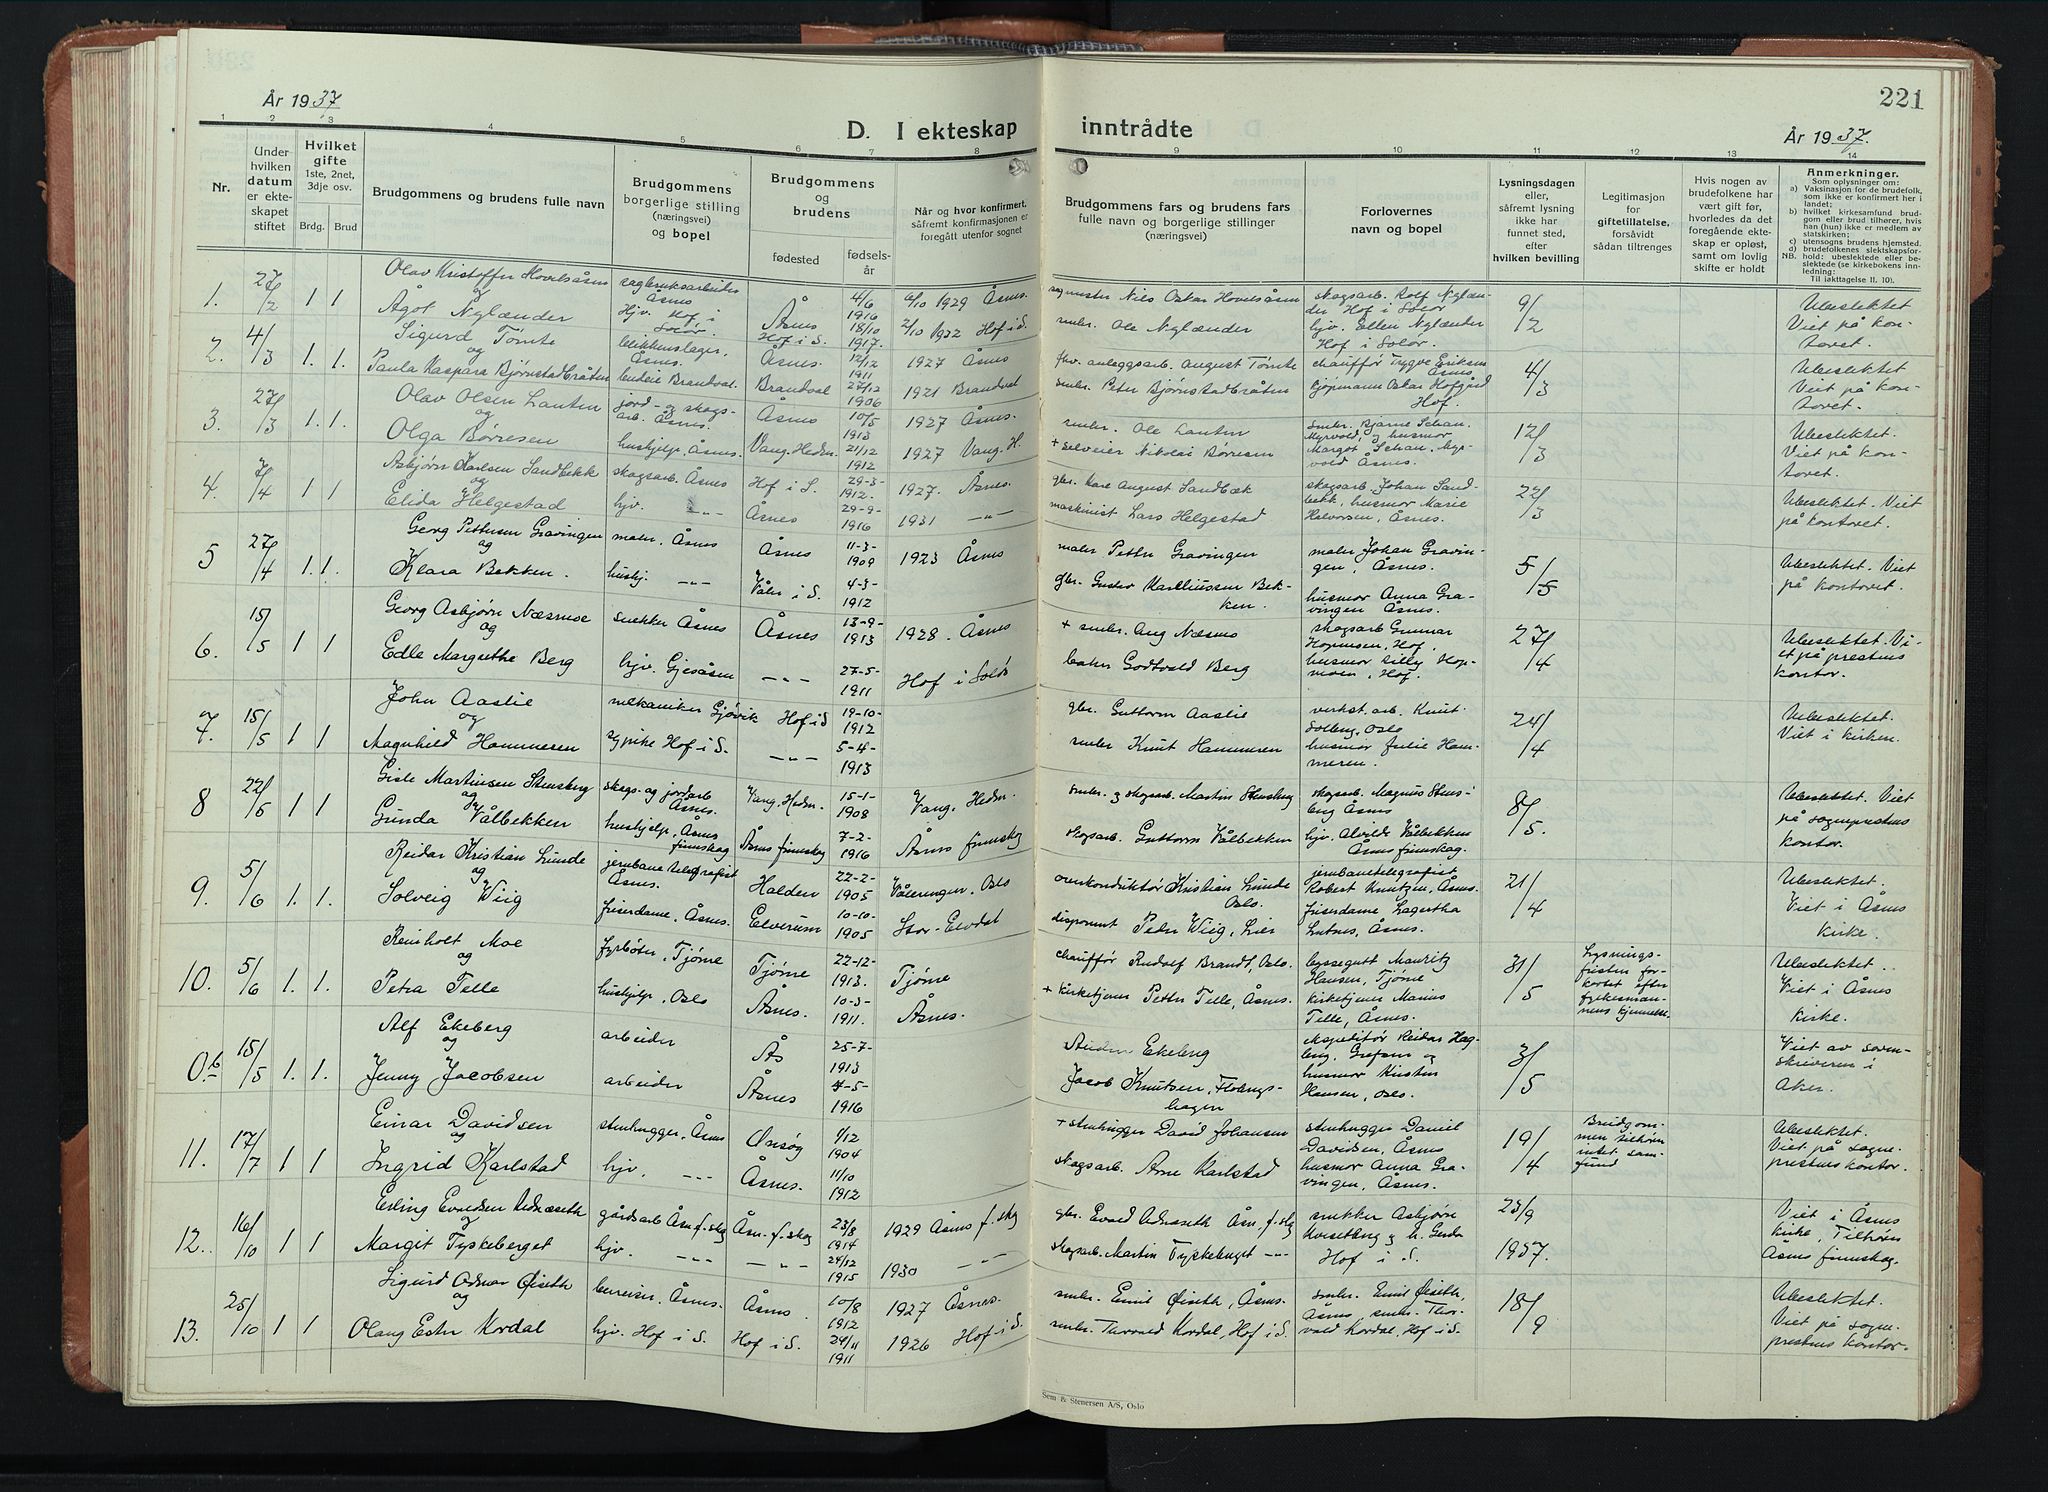 221
År 1937
D. I ekteskap inntrådte
År 1937.
1 2 3 4 5 6 7 8 9 10 11 12 13 14
Nr.
Under hvilken datum er ekteskapet stiftet
Hvilket gifte 1ste, 2net, 3dje osv.
Brdg. Brud
Brudgommens og brudens fulle navn
Brudgommens borgerlige stilling (næringsvei) og bopel
Brudgommens og brudens
fødested
fødselsår
Når og hvor konfirmert, såfremt konfirmasjonen er foregått utenfor sognet
Brudgommens fars og brudens fars fulle navn og borgerlige stillinger (næringsvei)
Forlovernes navn og bopel
Lysningsdagen eller, såfremt lysning ikke har funnet sted, efter hvilken bevilling
Legitimasjon for giftetillatelse, forsåvidt sådan tiltrenges
Hvis nogen av brudefolkene har vært gift før, hvorledes da det foregående ekteskap er opløst, samt om lovlig skifte er holdt
Anmerkninger.
Som oplysninger om:
a) Vaksinasjon for de brudefolk, som ikke er konfirmert her i landet;
b) hvilket kirkesamfund brudgom eller brud tilhører, hvis han (hun) ikke er medlem av statskirken;
c) utensogns brudens hjemsted.
d) brudefolkenes slektskapsforhold: ubeslektede eller beslektede (se kirkebokens innledning:
NB. Til iakttagelse II. 10).
1. 27/2 1 1 Olav Kristoffer Hovelsåsen sagbruksarbeider Åsnes Åsnes 4/6 1916 6/10 1929 Åsnes. sagmester Nils Oskar Hovelsåsen skogsarb. Rolf Nglænder Hof i Solør 9/2 Ubeslektet
og Ågot Nglænder Hjv. Hof i Solør Hof i S. 18/10 1917. 2/10 1932 Hof i S. smbr. Ole Nglænder hjv. Ellen Nglænder Hof i Solør. Viet på kontoret.
2. 4/3 1. 1. Sigurd Tømte blikkenslager, Åsnes. Åsnes. 12/12 1911 1927 Åsnes fhv. anleggsarb. August Tømte chauffør Trygve Eriksen Åsnes 4/3 Ubeslektet
og Paula Kaspara Bjørnstadbråten budeie Brandval. Brandval 27/12 1906 1921 Brandval smbr. Peter Bjørnstadbråten kjøpmann Oskar Hofgård Hof. Viet på kontoret.
3. 27/3 1. 1. Olav Olsen Lauten jord- og skogsarb. Åsnes. Åsnes 10/5 1913 1927 Åsnes. smbr. Ole Lauten smbr. Bjarne Johan. Myrvold, 12/3 Ubeslektet.
og Olga Børresen hushjelp, Åsnes. Vang. Hedm. 21/12 1912 1927 Vang. H. + selveier Nikolai Børresen husmor Margot Johan. Myrvold Åsnes. Viet på kontoret.
4. 7/4 1 1 Asbjørn Karlsen Sandbekk skogsarb. Åsnes Hof i S. 29-3- 1912. 1927. Åsnes. gbr. Karl August Sandbæk skogsarb. Johan Sandbekk, 22/3 Ubeslektet. Viet
og Elida Helgestad hjv. -"- Åsnes 29-9- 1916 1931 -"- maskinist Lars Helgestad husmor Marie Halvorsen, Åsnes. på kontoret.
5 27/4 1. 1. Georg Pettersen Gravingen maler, Åsnes Åsnes 11-3- 1909 1923 Åsnes maler Petter Gravingen maler Johan Gravingen, Åsnes. 5/5 Ubeslektet. Viet
og Klara Bekken. hushj. -"- Våler i S. 4-3- 1912 gbr. Gustav Karlliussen Bekken. husmor Anna Gravingen Åsnes. på kontoret.
6. 15/5 1 1 Georg Asbjørn Næsmoe snekker Åsnes Åsnes 13-9- 1913 1928. Åsnes + smbr. Aug Næsmo skogsarb Gunnar Hopmoen, Hof, 27/4 Ubeslektet. Viet
og Edle Margrethe Berg hjv. Gjesåsen -"- 27-5- 1911 Hof i Solør baker Godtvald Berg husmor Lilly Hopmoen, Hof. på prestens kontor.
7. 15/5 1 1 John Aaslie mekaniker Gjøvik Hof i S 19-10- 1912 gbr. Guttorm Aaslie verkst. arb. Knut Solberg, Oslo 24/4 Ubeslektet.
og Aagnhild Hammeren sypike Hof i S. -"- 5-4- 1913 smbr Knut Hammeren husmor Julie Hammeren. Viet i kirken.
8 22/5 1 1 Gisle Martinsen Stensberg skogs- og jordarb Åsnes. Vang, Hedm. 15-1- 1908 Vang. Hedm. smbr. og skogsarb. Martin Stensberg skogsarb. Magnus Stensberg Åsnes 8/5. Ubeslektet. Viet
og Gunda Vålbekken hushjelp, Åsnes finnskog Åsnes finnskog 7-2- 1916 Åsnes finnskog skogsarb. Guttorm Vålbekken hjv. Alvilde Vålbekken Åsnes finnskog. på sogneprestens kontor.
9. 5/6 1. 1. Reidar Kristian Lunde jernbanetelegrafist Åsnes. Halden 22-2- 1905 Vålerengen, Oslo overkonduktør Kristian Lunde Oslo. jernbanetelegrafist Robert Knutzen, Åsnes. 21/4 Ubeslektet.
og Solveig Wiig friserdame, Åsnes. Elverum 10-10- 1905 Stor-Elvdal disponent Peder Wiig, Lier friserdame Lagertha Lutnes, Åsnes. Viet i Åsnes kirke.
10. 5/6 1. 1. Reinholt Moe fyrbøter, Tjøme Tjøme 22-12- 1913. Tjøme chauffør Rudolf Brandt, Oslo. byssegutt Mauritz Hansen, Tjøme 31/5 Lysningsfristen forkortet efter fylkesmannens kjennelse. Ubeslektet.
og Petra Telle hushjelp, Oslo Åsnes. 10-3- 1911. Åsnes. + kirketjener Petter Telle, Åsnes. kirketjener Marius Telle, Åsnes. Viet i Åsnes kirke.
0.b 15/5 1. 1. Alf Ekeberg arbeider Ås 25-7- 1913 Ekeberg ekspeditør Reidar Hagberg, og 3/5 Viet av sorenskriveren i
og Jenny Jacobsen arbeider Åsnes 4-5- 1916 Jacob Knutsen, Flobergshagen husmor Kirsten Hansen, Oslo. Aker.
11. 17/7 1 1 Einar Davidsen stenhugger, Åsnes Onsøy 1/12 1904 + stenhugger David Johansen stenhugger Daniel Davidsen, Åsnes 19/4 Brudgommen tilhører intet samfund Ubeslektet.
og Ingrid Karlstad hjv. -"- Åsnes. 11/10 1912 skogsarb. Arne Karlstad husmor Anna Gravingen, Åsnes. Viet på sogneprestens kontor.
12. 16/10 1 1 Erling Evensen gårdsarb Åsn. f. skog Åsn. f. skog 23/8 1914 1929 Åsnes f. skog gbr. Åsn. f. skog snekker Asbjørn Kvesetberg og h. Gerda 23/9 Viet i Åsnes
og Margit Tyskeberget hjv. -"- -"- 24/12 1915 1930 -"- skogsarb. Martin Tyskeberget -"- Hof i S. 1937. kirke, Tilhører Åsnes finnskog.
13. 25/10 1 1 Sigurd Odnar Øiseth bereiser, Åsnes. Åsnes. 10/8 1912 1927 Åsnes. smbr. Emil Øiseth, Åsnes. smbr. Emil Øiseth, Åsnes, 18/9 Ubeslektet.
og Olaug Ester Kordal hjv. Hof i S. Hof i S. 24/11 1911 1926 Hof i S. smbr. Thorvald Kordal, Hof i S. smbr. Thorvald Kordal, Hof i S. Viet på sogneprestens kontor.
Sem & Stenersen A/S, Oslo